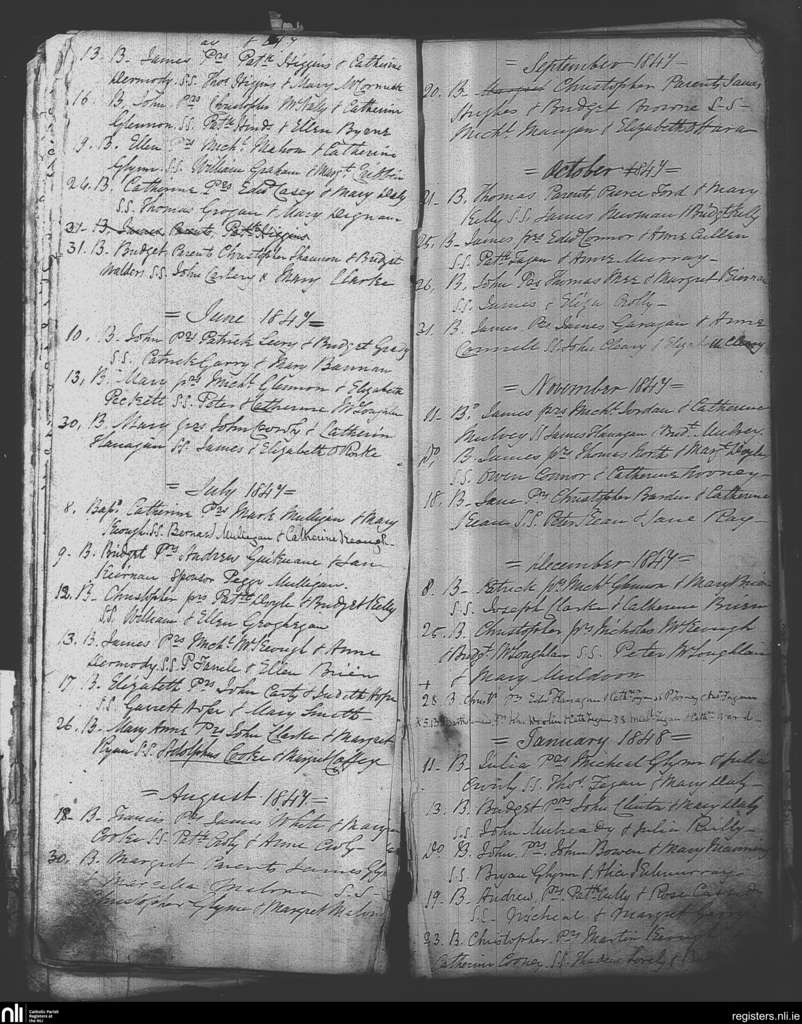 13. B. James Prs Patk Higgins & Catherine
Dermody S.S. Thos Higins & Mary McCormick
16. B. John Prs Christopher McNally & Catherin
Glennon. SS. Patk Hind & Ellen Byrne
9. B. Ellen Prs Michl Mahon & Catherine
Glynn. SS. William Graham & Margt
24. B. Catherine Prs Edwd Casey & Mary Daly
S.S. Thomas Grogan & Mary Degnan
31. B. James Parents Patk Higgins
31. B. Bridget Parents Christopher Shannon & Bridget
Walders S.S. John & Mary Clarke
= June 1847 =
10. B. John Prs Patrick Leery & Bridget Grady
S.S. Patrick Garry & Mary Bannan
13. B. Mary prs Michl Glennon & Elizabeth
Peckett S.S. Peter & Catherine McLoughlin
30. B. Mary prs John & Catherin
Flanagan SS. James & Elizabeth O Rorke
= July 1847 =
8. Bapd. Catherine Prs Mark Mulligan & Mary
Keough. SS. Bernard Mulligan & Catherine Keough
9. B. Bridget Prs Andrew & Jan
Keirnan Sponsor Peggy Mulligan.
12. B. Christopher prs Patk Doyle & Bridget Kelly
S.S. William & Ellen Geoghegan
13. B. James Prs Michl McKeough & Anne
Dermody. S.S. P Farrele & Ellen Brien
17. B. Elizabeth Prs John Carty & Judith Hope
S.S. Garrett Hope & Mary Smith
26. B. Mary Anne Prs John Clarke & Margret
Ryan S.S. Adolphus Cooke & Margret Caffrey
= August 1847 =
18. B. Francis Prs James White & Margret
Cooke S.S. Patk & Anne
30. B. Margret Parents James Glynn
& Marcella Malone S.S.
Christopher Glynn & Margret Malone
= September 1847 =
20. B. Christopher Parents James
Hughes & Bridget Browne S.S.
Michl Mangan & Elizabeth OHara
= October 1847 =
21. B. Thomas Parents Pierce Ford & Mary
Kelly S.S. James Newman & Bridgt Kelly
25. B. James prs Edwd Connor & Anne Cullen
S.S. Patk Fagan & Anne Murray
26. B. John Prs Thomas Mee & Margret Kiernan
S.S. James & Eliza Boyle
31. B. James Prs James Garagan & Anne
Connell S.S. John Cleary & Elizath McCleary
= November 1847 =
11. B. James prs Michl Jordan & Catherine
Mulvey SS James Flanagan & Bridt. Mulvey
Do. B. James prs Thomas North & Margt Doyle
S.S. Owen Connor & Catherine Rooney
18. B. Jane Prs Christopher Barden & Catherine
Kean S.S. Peter Kean & Jane Ray
= December 1847 =
8. B. Patrick prs Michl Glennon & Mary Brien
S.S. Joseph Clarke & Catherine Brien
25. B. Christopher prs Nicholas McKeough
& Bridgt McLoughlan S.S. Peter McLoughlan
& Mary Muldoon
28 B. Christr Prs Edwd Flanagan & Cath
= January 1848 =
11. B. Julia Prs Micheal Glynn & Julia
S.S. Thos. Fagan & Mary Daly
13. B. Bridget prs John Clinton & Mary Daly
S.S. John Mulready & Julia Reilly
Do B. John, Prs. John Bowen & Mary Manning
S.S. Bryan Glynn & Alice
19. B. Andrew Prs Patk Tully & Rose
S.S. Micheal & Margret Garry
23. B. Christopher Prs Martin Keough
Catherine Cooney S.S. Thadeus Lovely &
nli Catholic Parish Registers at the NLI
registers.nli.ie